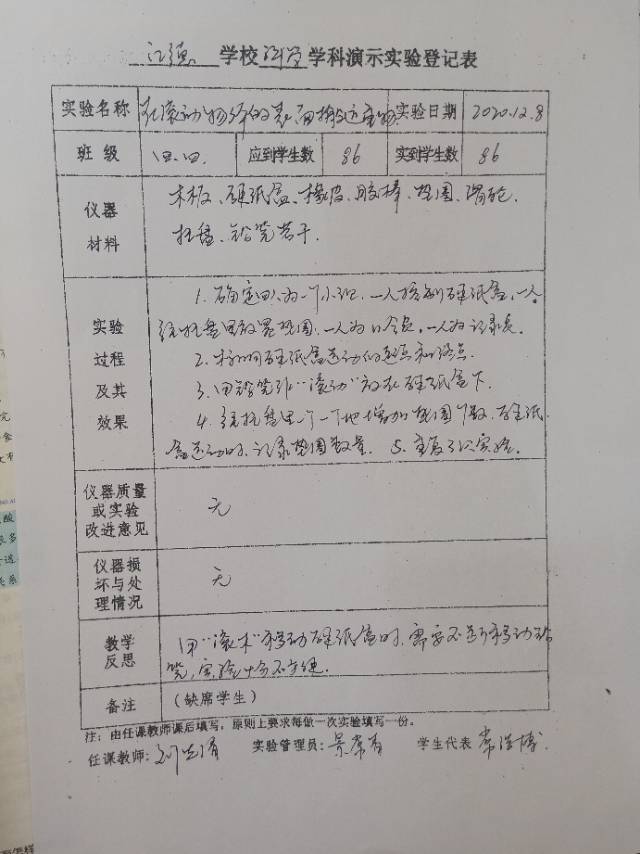 江德 学校 科学 学科演示实验登记表
实验名称 在滚动物体的表面搬运重物 实验日期 2020.12.8
班 级 四.四. 应到学生数 86 实到学生数 86
仪器 材料
木板、硬纸盒、橡皮、胶棒、垫圈、滑轮、
托盘、铅笔若干.
实验 过程 及其 效果
1. 确定四人为一个小组,一人控制硬纸盒,一人
往托盘里放置垫圈,一人为口令员,一人为记录员.
2. 标明硬纸盒运动的起点和终点.
3. 用铅笔作"滚动"放在硬纸盒下.
4. 往托盘里一个一个地增加垫圈个数,硬纸
盒运动时,记录垫圈数量. 5. 重复3次实验.
仪器质量
或实验
改进意见
无
仪器损
坏与处
理情况
无
教学
反思
用"滚木"移动硬纸盒时,需要不断移动铅
笔,实验十分不方便.
备注 (缺席学生)
注:由任课教师课后填写,原则上要求每做一次实验填写一份。
任课教师: 实验管理员: 学生代表